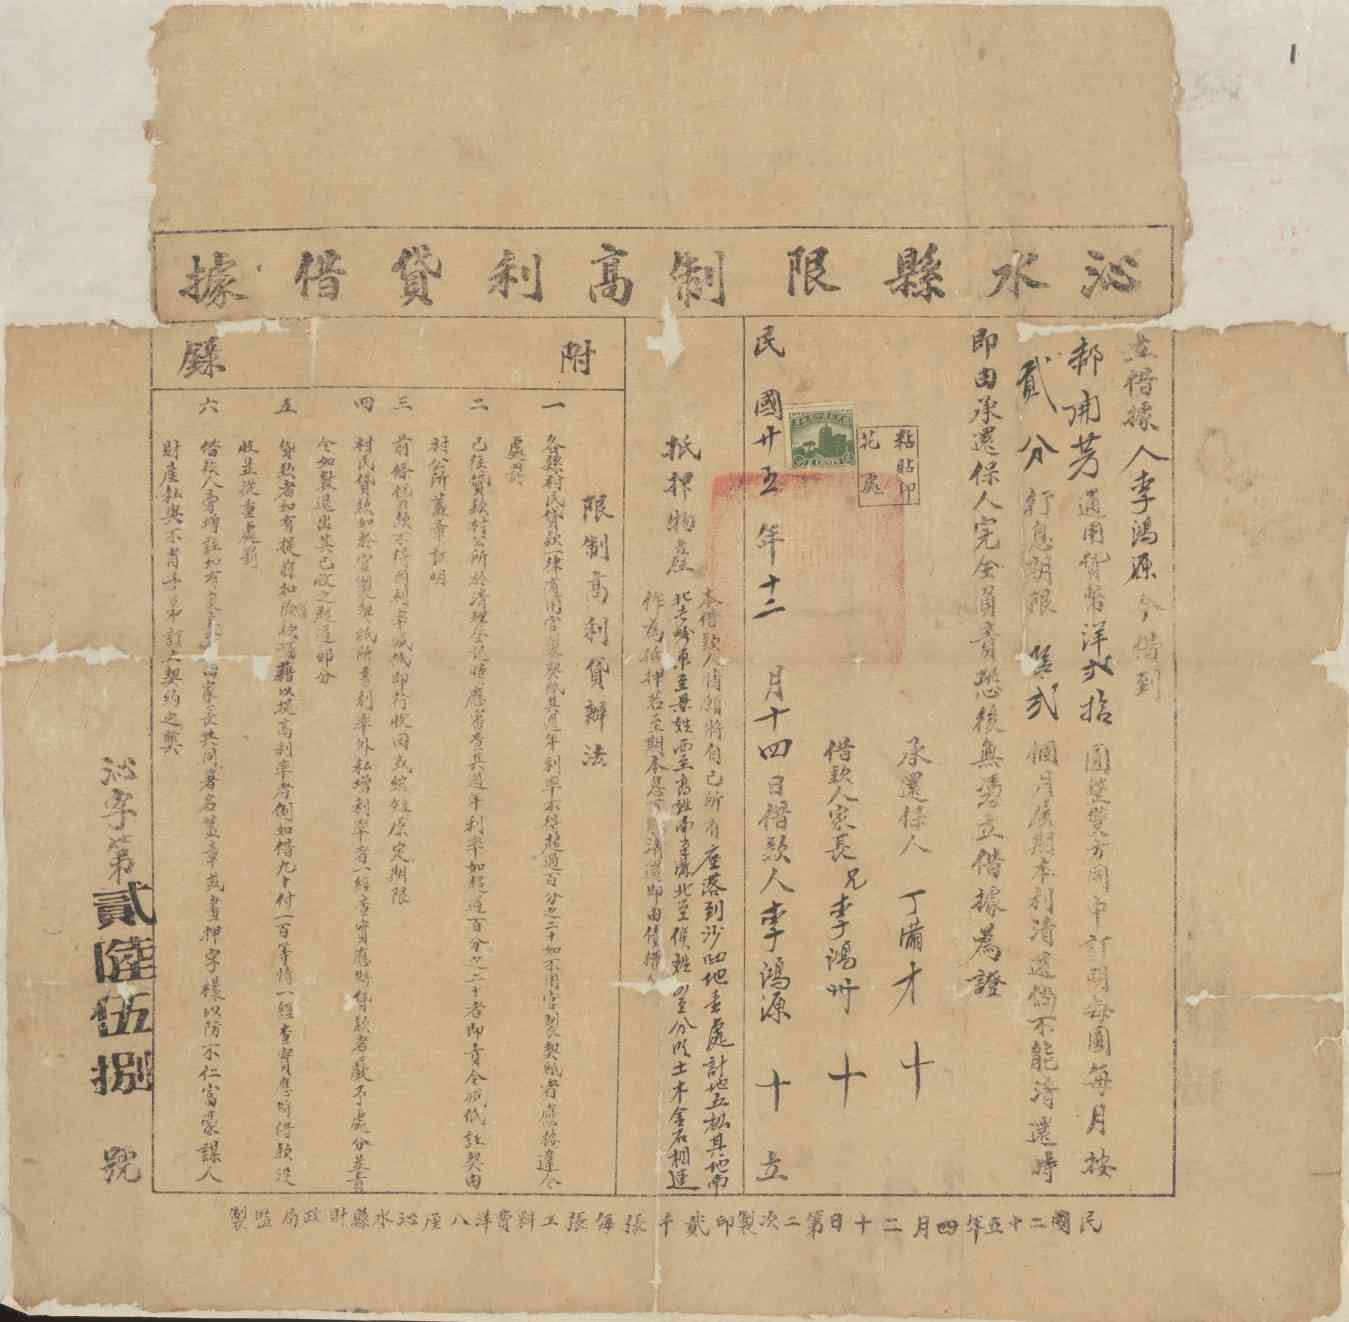 沁水縣限制高利貸借據
立借據人李鴻源今借到
郝開芳通用貨幣洋弍拾圓整雙方同中訂明每圓每月按
貳分行息期限弍個月屆期本利清還倘不能清還時
即由承還保人完全負責恐後無憑立借據為證
承還保人 丁備才 十
借款人家長兄李鴻州 十
粘貼印
花處
民國廿五年十二月十四日借款人李鴻源 十 立
抵押物產
本借款人情願將自己所有座落到沙凹地壹處計地五畝其地南
北畛東至吳姓西至喬姓南至溝北至侯姓四至分明土木金石相連
作為抵押若至期本息不能清還即由債權人
附錄
限制高利貸辦法
一 各縣村民貸款一律有用官製契紙其週年利率不得超過百分之二十如不用官製契紙者應按違令
處罰
二 已往貸款村公所於清理登記時應審查其週年利率如超過百分之二十者即責令減低註契由
村公所蓋章証明
三 前條貸款不得因利率減低即行收回或縮短原定期限
四 村民貸款如於官製契紙所書利率外私增利率者一經查實應將貸款者嚴予處分並責
令如數退出其已收之超過部分
五 貸款者如有提前扣除款項藉以提高利率者例如借九十付一百等情一經查實應將借款沒
收並從重處罰
六 借款人旁增註如有家長者由家長共同署名蓋章或畫押字樣以防不仁富豪謀人
財產私與不肖子弟訂立契約之弊
沁字第貳陸伍捌號
民國二十五年四月二十日第二次製印貳千張每張工料費洋八厘沁水縣財政局監製